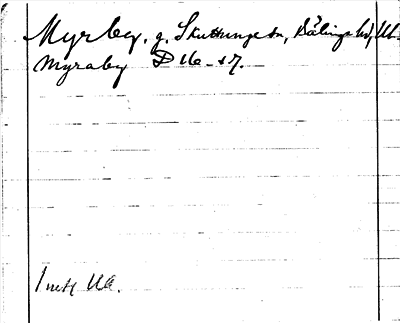 Myrby, g. Skuttunge sn, Bälings hd, Ul.
Myraby D 16 - 47.
1 mtl UG.